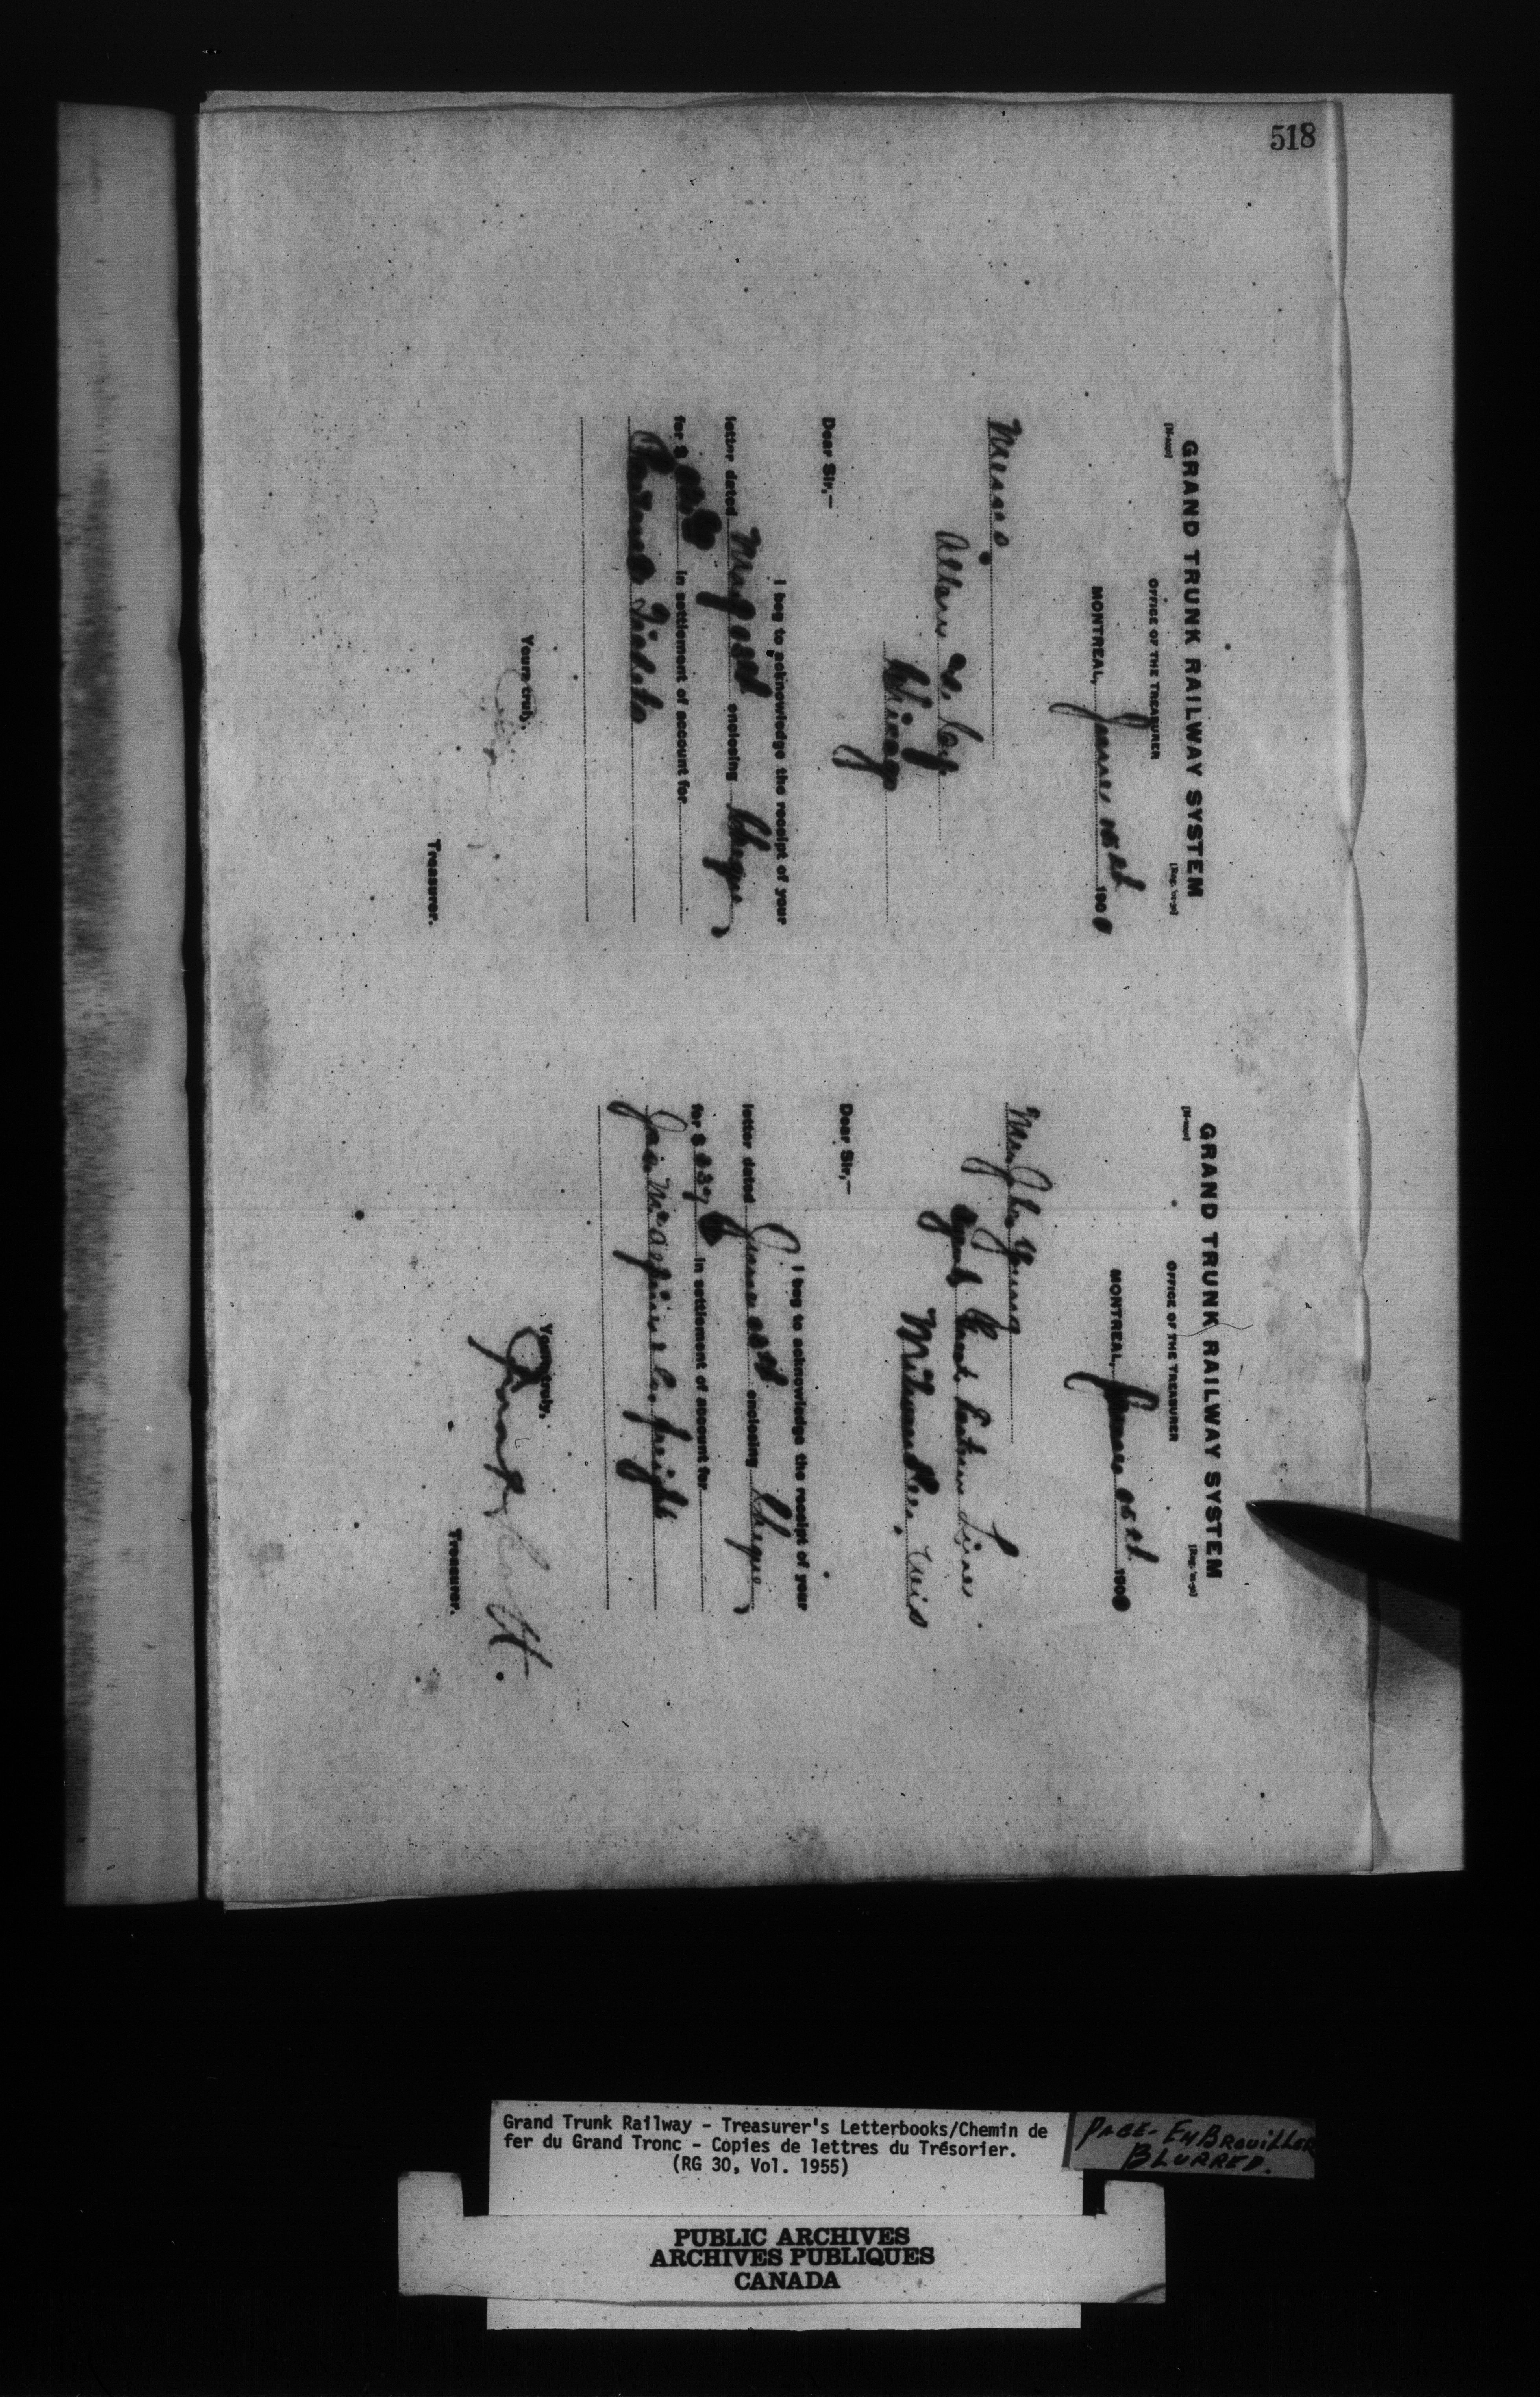 518
GRAND TRUNK RAILWAY SYSTEM
OFFICE OF THE TREASURER
MONTREAL, June 190
Messrs.
Allan & Coy.
Chicago
Dear Sir,—
I beg to acknowledge the receipt of your
letter dated May enclosing Cheque
for $ in settlement of account for
Tickets
Yours truly,
Treasurer.
GRAND TRUNK RAILWAY SYSTEM
OFFICE OF THE TREASURER
MONTREAL, 190
Mr. John Young
Agent Great Eastern Line
Milwaukee, Wis
Dear Sir,—
I beg to acknowledge the receipt of your
letter dated June enclosing Cheque
for $ in settlement of account for
freight
Yours truly,
Treasurer.
Grand Trunk Railway - Treasurer's Letterbooks/Chemin de
fer du Grand Tronc - Copies de lettres du Trésorier.
(RG 30, Vol. 1955)
PAGE - EMBROUILLER
BLURRED.
PUBLIC ARCHIVES
ARCHIVES PUBLIQUES
CANADA